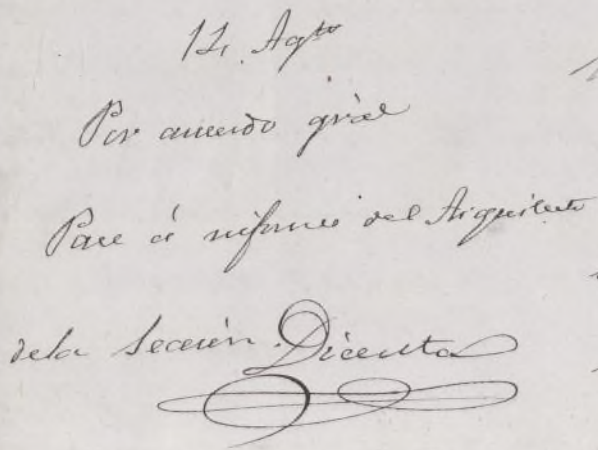 12, Agto
Por acuerdo gral
Pase á informe del Arquitecto
de la Sección. Dicenta